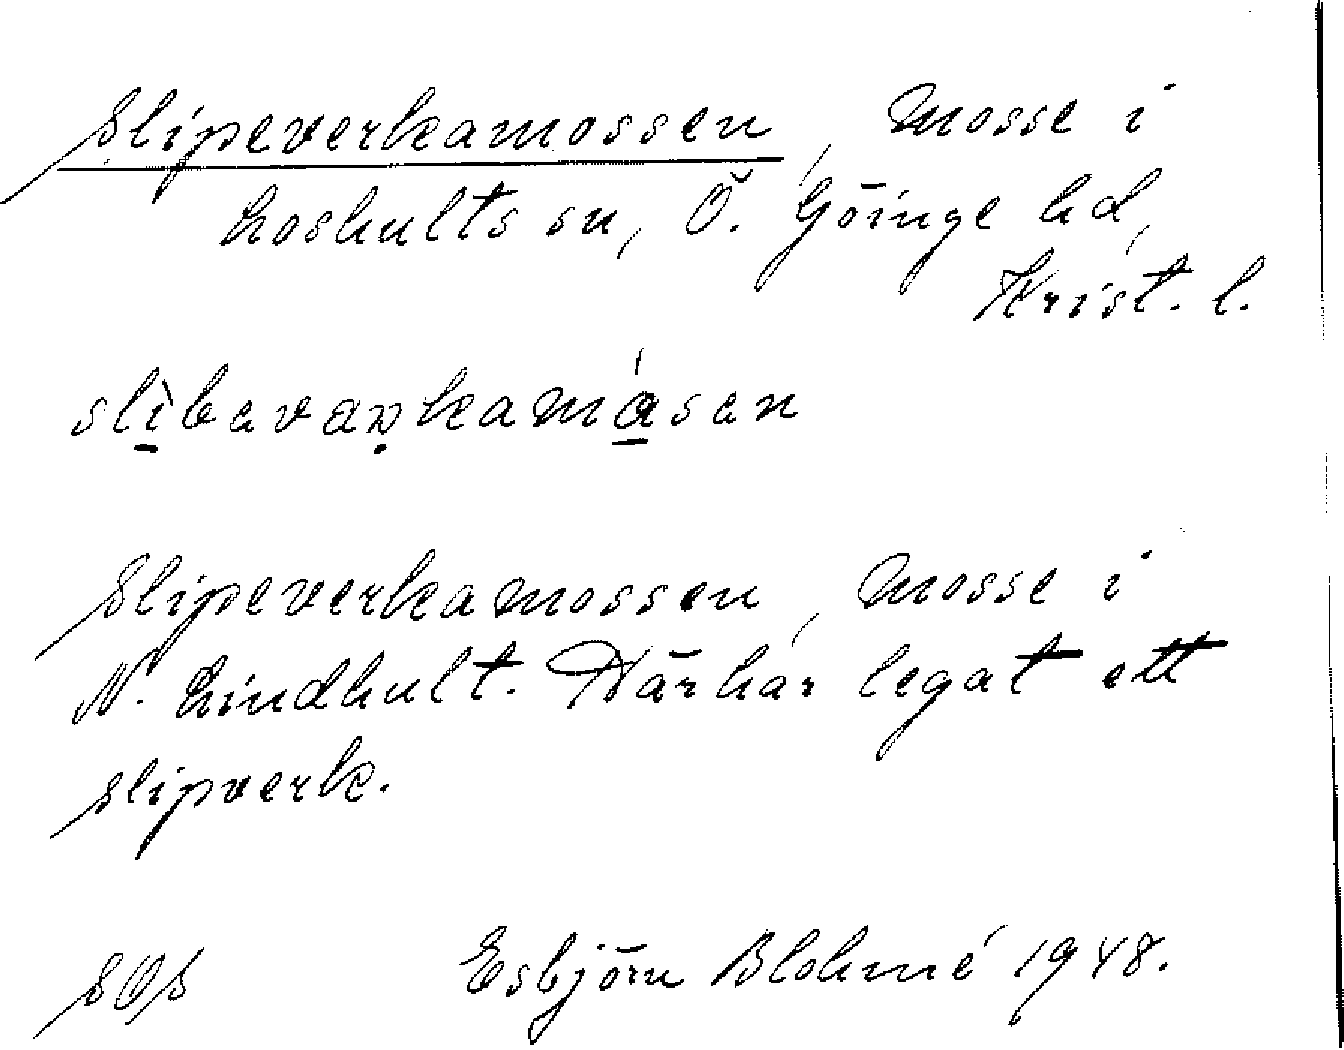 Slipeverkamossen, mosse i
Loshults sn, Ö. Göinge hd,
Krist. l.
slìbavaṛkamásan
Slipeverkamossen, mosse i
N. Lindhult. Där har legat ett
slipverk.
SOS Esbjörn Blohmé 1948.